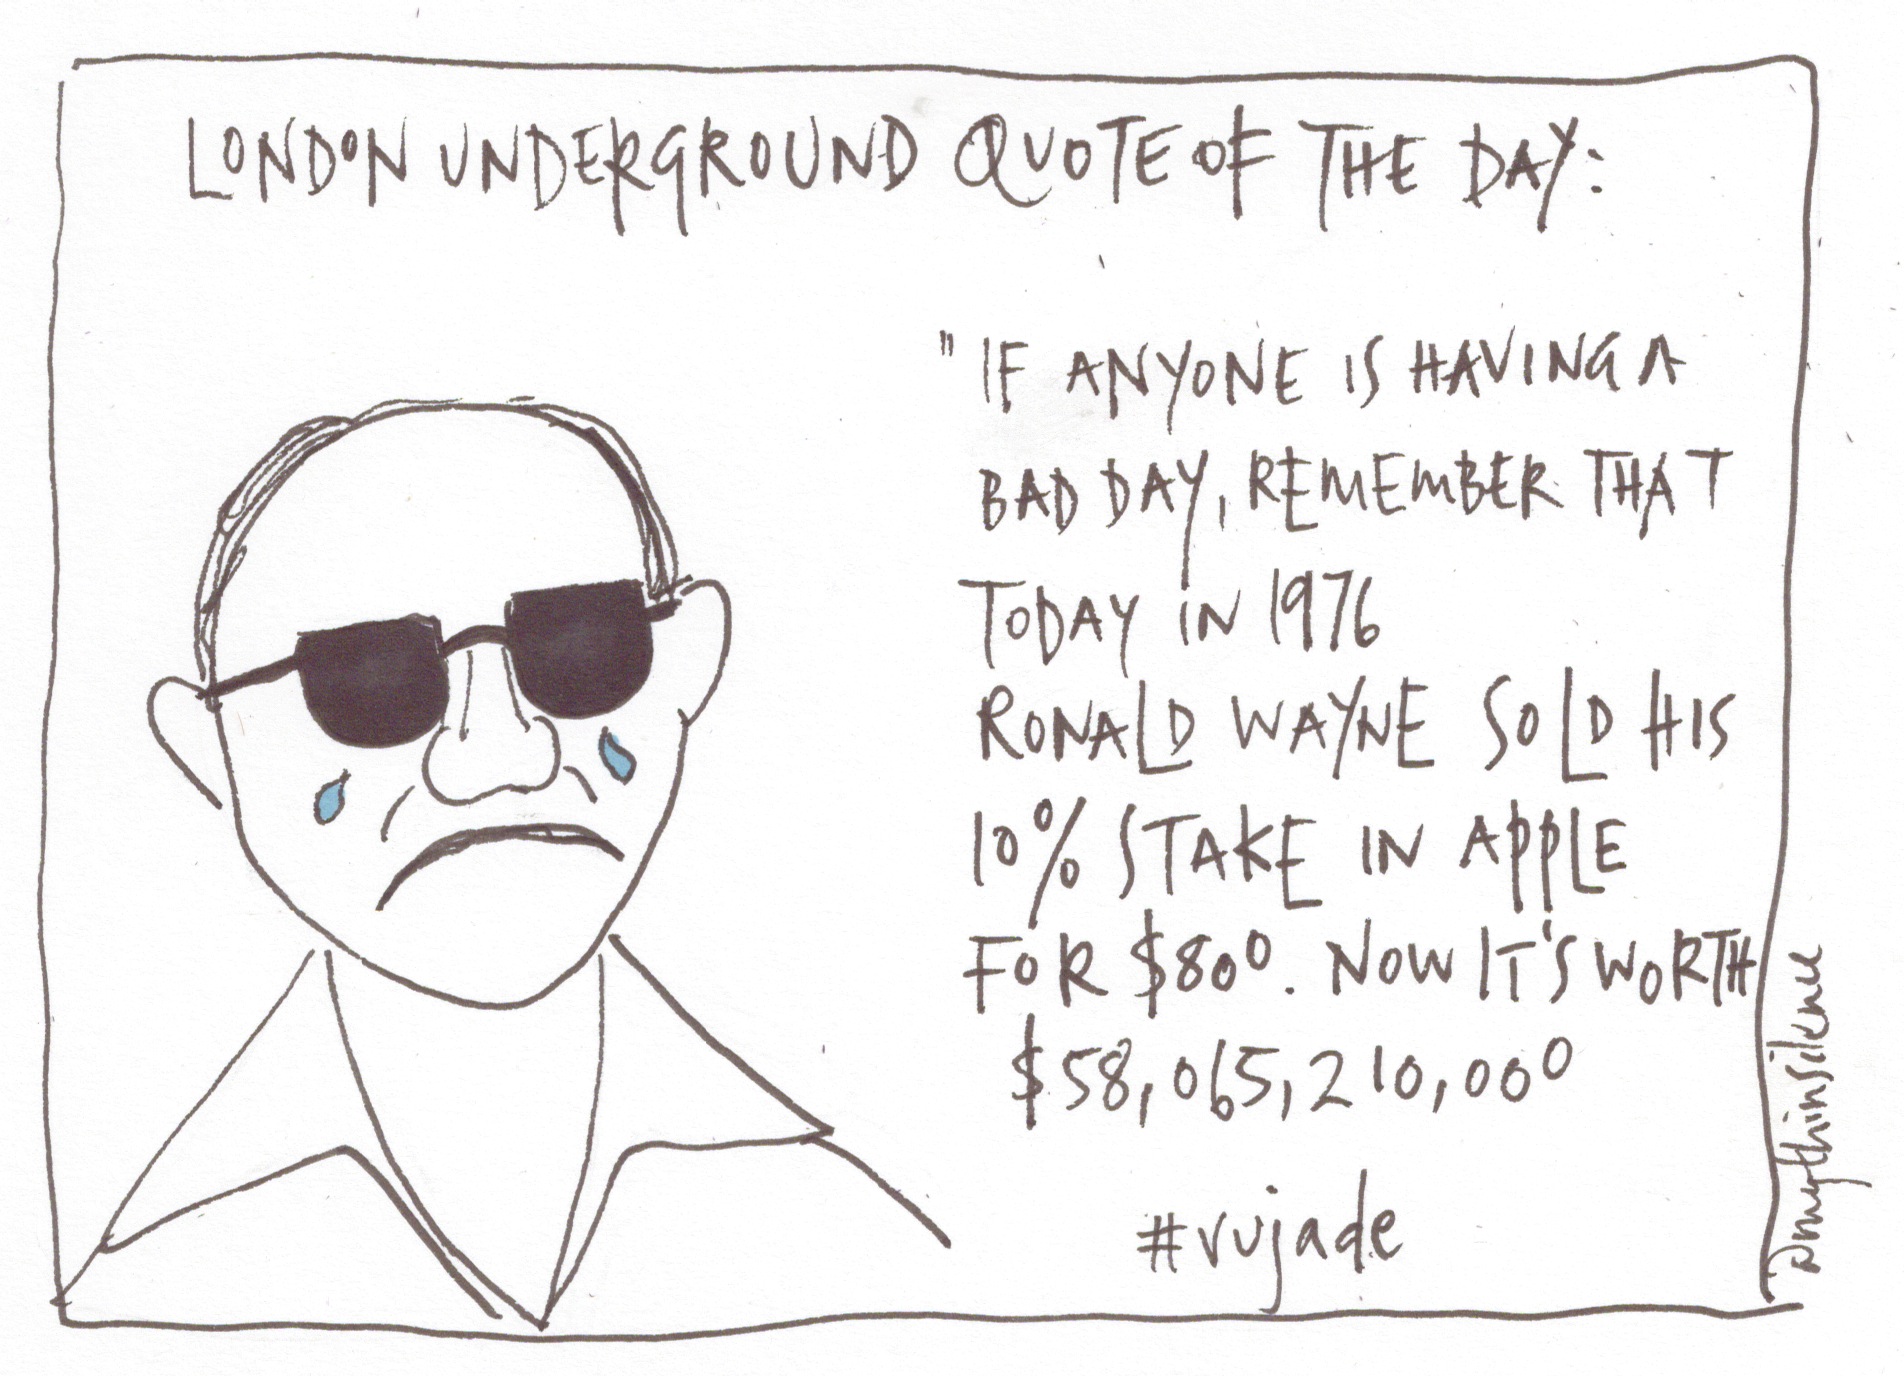 LONDON UNDERGROUND QUOTE OF THE DAY:
"IF ANYONE IS HAVING A
BAD DAY, REMEMBER THAT
TODAY IN 1976
RONALD WAYNE SOLD HIS
10% STAKE IN APPLE
FOR $800. NOW IT'S WORTH
$58,065,210,000
#vujade